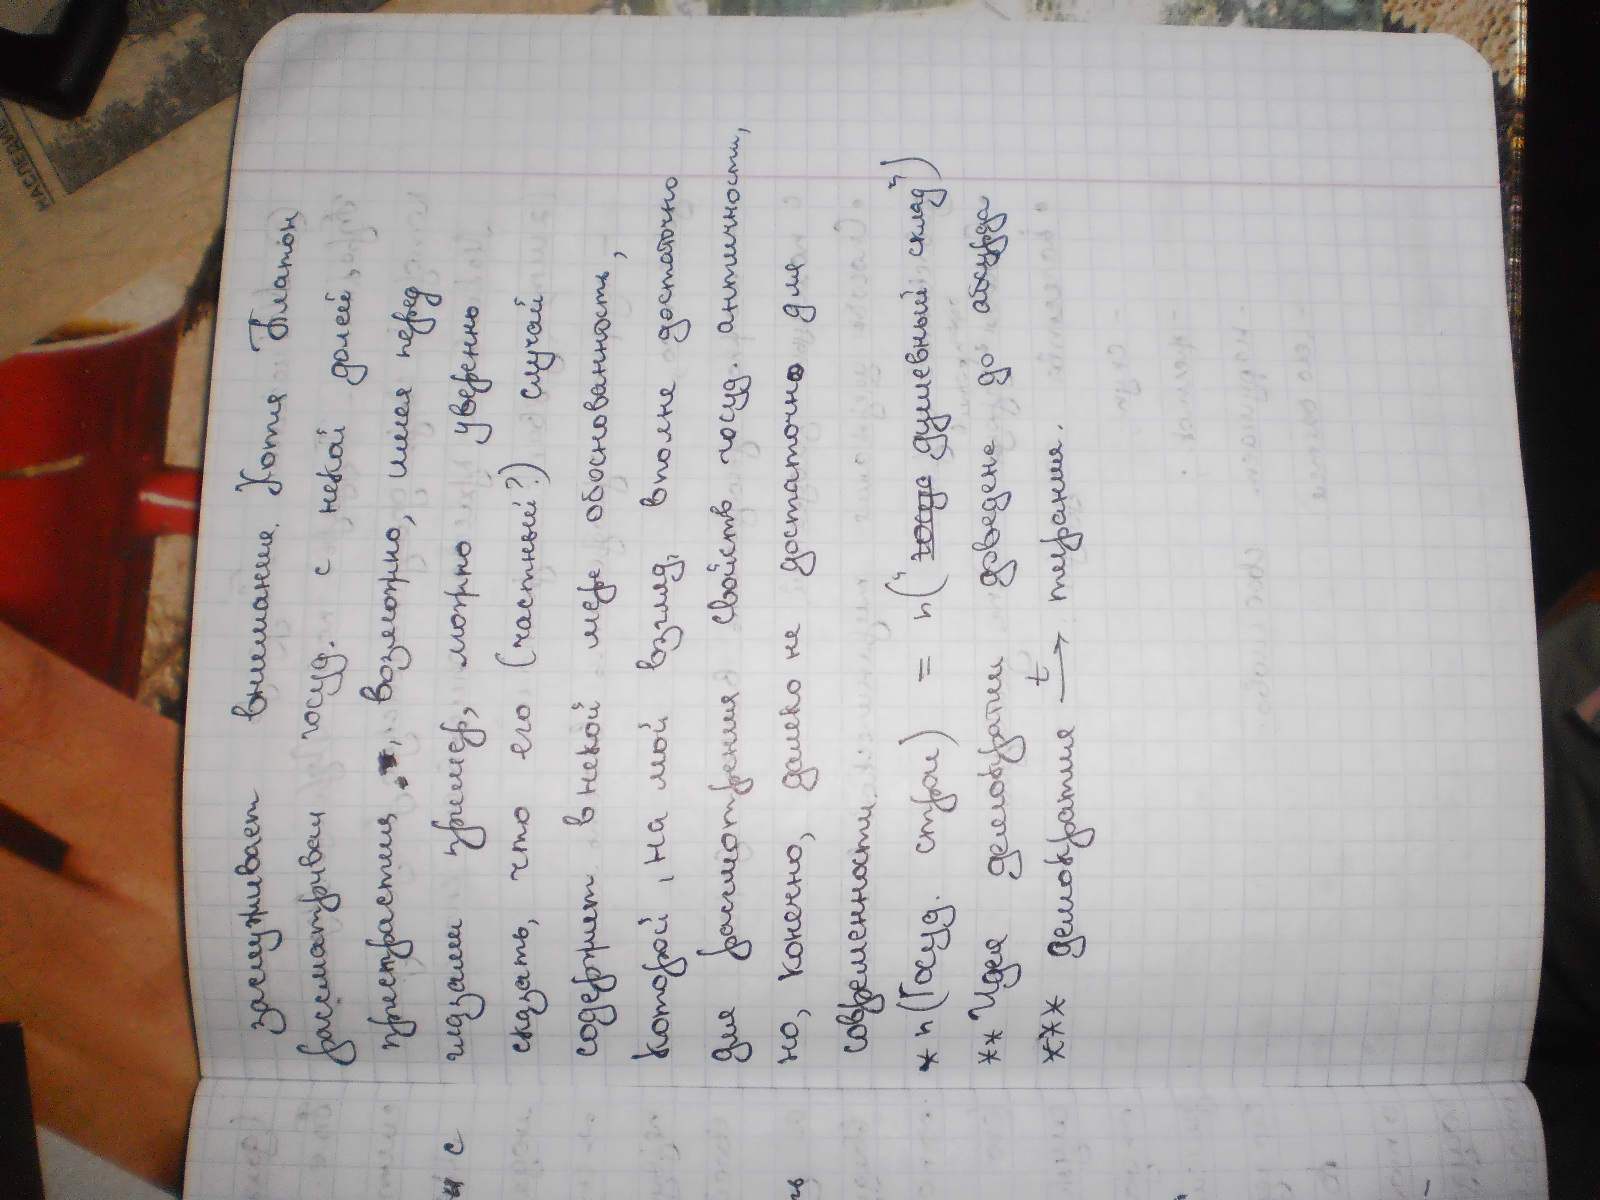 заслуживает внимание. Хотя Платон
рассматривал госуд. с некой долей
пристрастия, возможно, имея перед
глазами пример, можно уверенно
сказать, что его (частный?) случай
содержит в некой мере обоснованность,
которой, на мой взгляд, вполне достаточно
для рассмотрения свойств госуд. античности,
но, конечно, далеко не достаточно для
современности.
* n(Госуд. строи) = n("душевный склад")
** Идея демократии доведена до абсурда
*** демократия t→ тирания.
НАСЛЕДИЕ